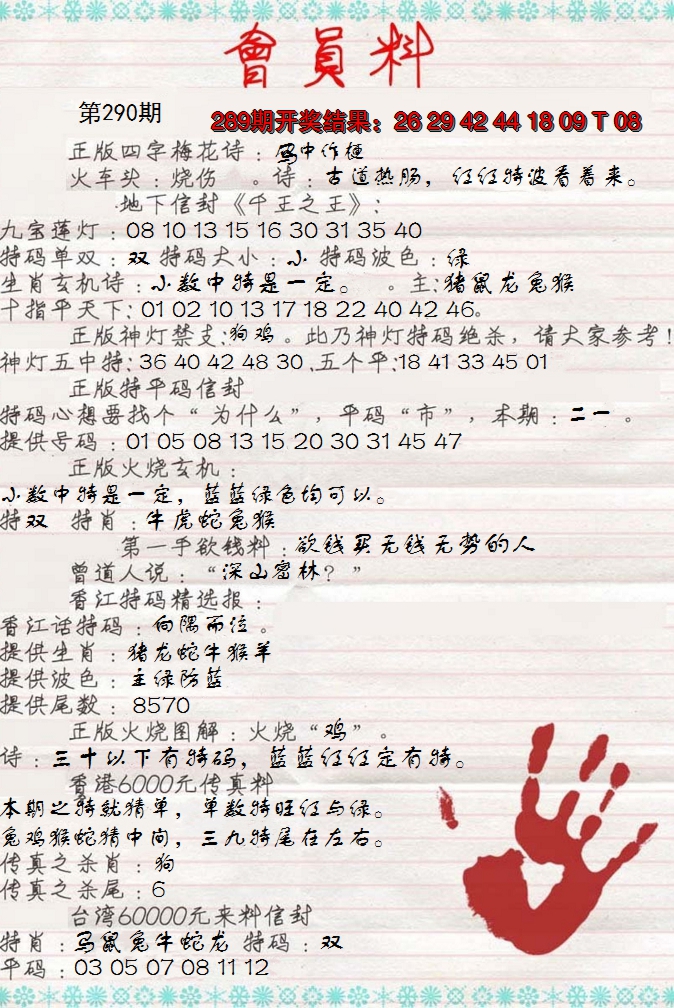 會員料
第290期
289期开奖结果：26 29 42 44 18 09 T 08
正版四字梅花诗：马中作梗
火车头：烧伤 。诗：古道热肠，红红特波看着来。
地下信封《千王之王》：
九宝莲灯：08 10 13 15 16 30 31 35 40
特码单双：双 特码大小：小 特码波色：绿
生肖玄机诗：小数中特是一定。 。主：猪鼠龙兔猴
十指平天下：01 02 10 13 17 18 22 40 42 46。
正版神灯禁支：狗鸡。此乃神灯特码绝杀，请大家参考！
神灯五中特：36 40 42 48 30 .五个平：18 41 33 45 01
正版特平码信封
特码心想要找个“为什么”，平码“市”，本期：二一 。
提供号码：01 05 08 13 15 20 30 31 45 47
正版火烧玄机：
小数中特是一定，蓝蓝绿色均可以。
特双 特肖：牛虎蛇兔猴
第一手欲钱料：欲钱买无钱无势的人
曾道人说：“深山密林？”
香江特码精选报：
香江话特码：向隅而泣。
提供生肖：猪龙蛇牛猴羊
提供波色：主绿防蓝
提供尾数：8570
正版火烧图解：火烧“鸡”。
诗：三十以下有特码，蓝蓝红红定有特。
香港6000元传真料
本期之特就猜单，单数特旺红与绿。
兔鸡猴蛇猜中间，三九特尾在左右。
传真之杀肖：狗
传真之杀尾：6
台湾60000元来料信封
特肖：马鼠兔牛蛇龙 特码：双
平码：03 05 07 08 11 12